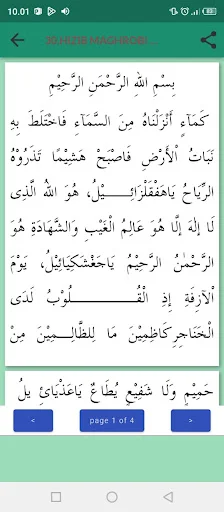 10.01
10.HIJIB MAGHROBI...
بِسْمِ اللهِ الرَّحْمَنِ الرَّحِيْمِ
كَمَآءٍ أَنْزَلْنَاهُ مِنَ السَّمَآءِ فَاخْتَلَطَ بِهِ
نَبَاتُ الْأَرْضِ فَاصْبَحَ هَشِيْمًا تَذْرُوْهُ
الرِّيَاحُ يَاهَفْقَلْزَائِــــيْلُ، هُوَ اللهُ الَّذِى
لَا إِلَهَ إِلَّا هُوَ عَالِمُ الْغَيْبِ وَالشَّهَادَةِ هُوَ
الرَّحْمٰنُ الرَّحِيْمُ يَاجَغْشَكِيَائِيْلُ، يَوْمَ
الْآزِفَةِ إِذِ الْقُـــــــلُوْبُ لَدَى
الْحَنَاجِرِكَاظِمِيْنَ مَا لِلظَّالِمِيْنَ مِنْ
حَمِيْمٍ وَلَا شَفِيْعٍ يُطَاعُ
< page 1 of 4 >